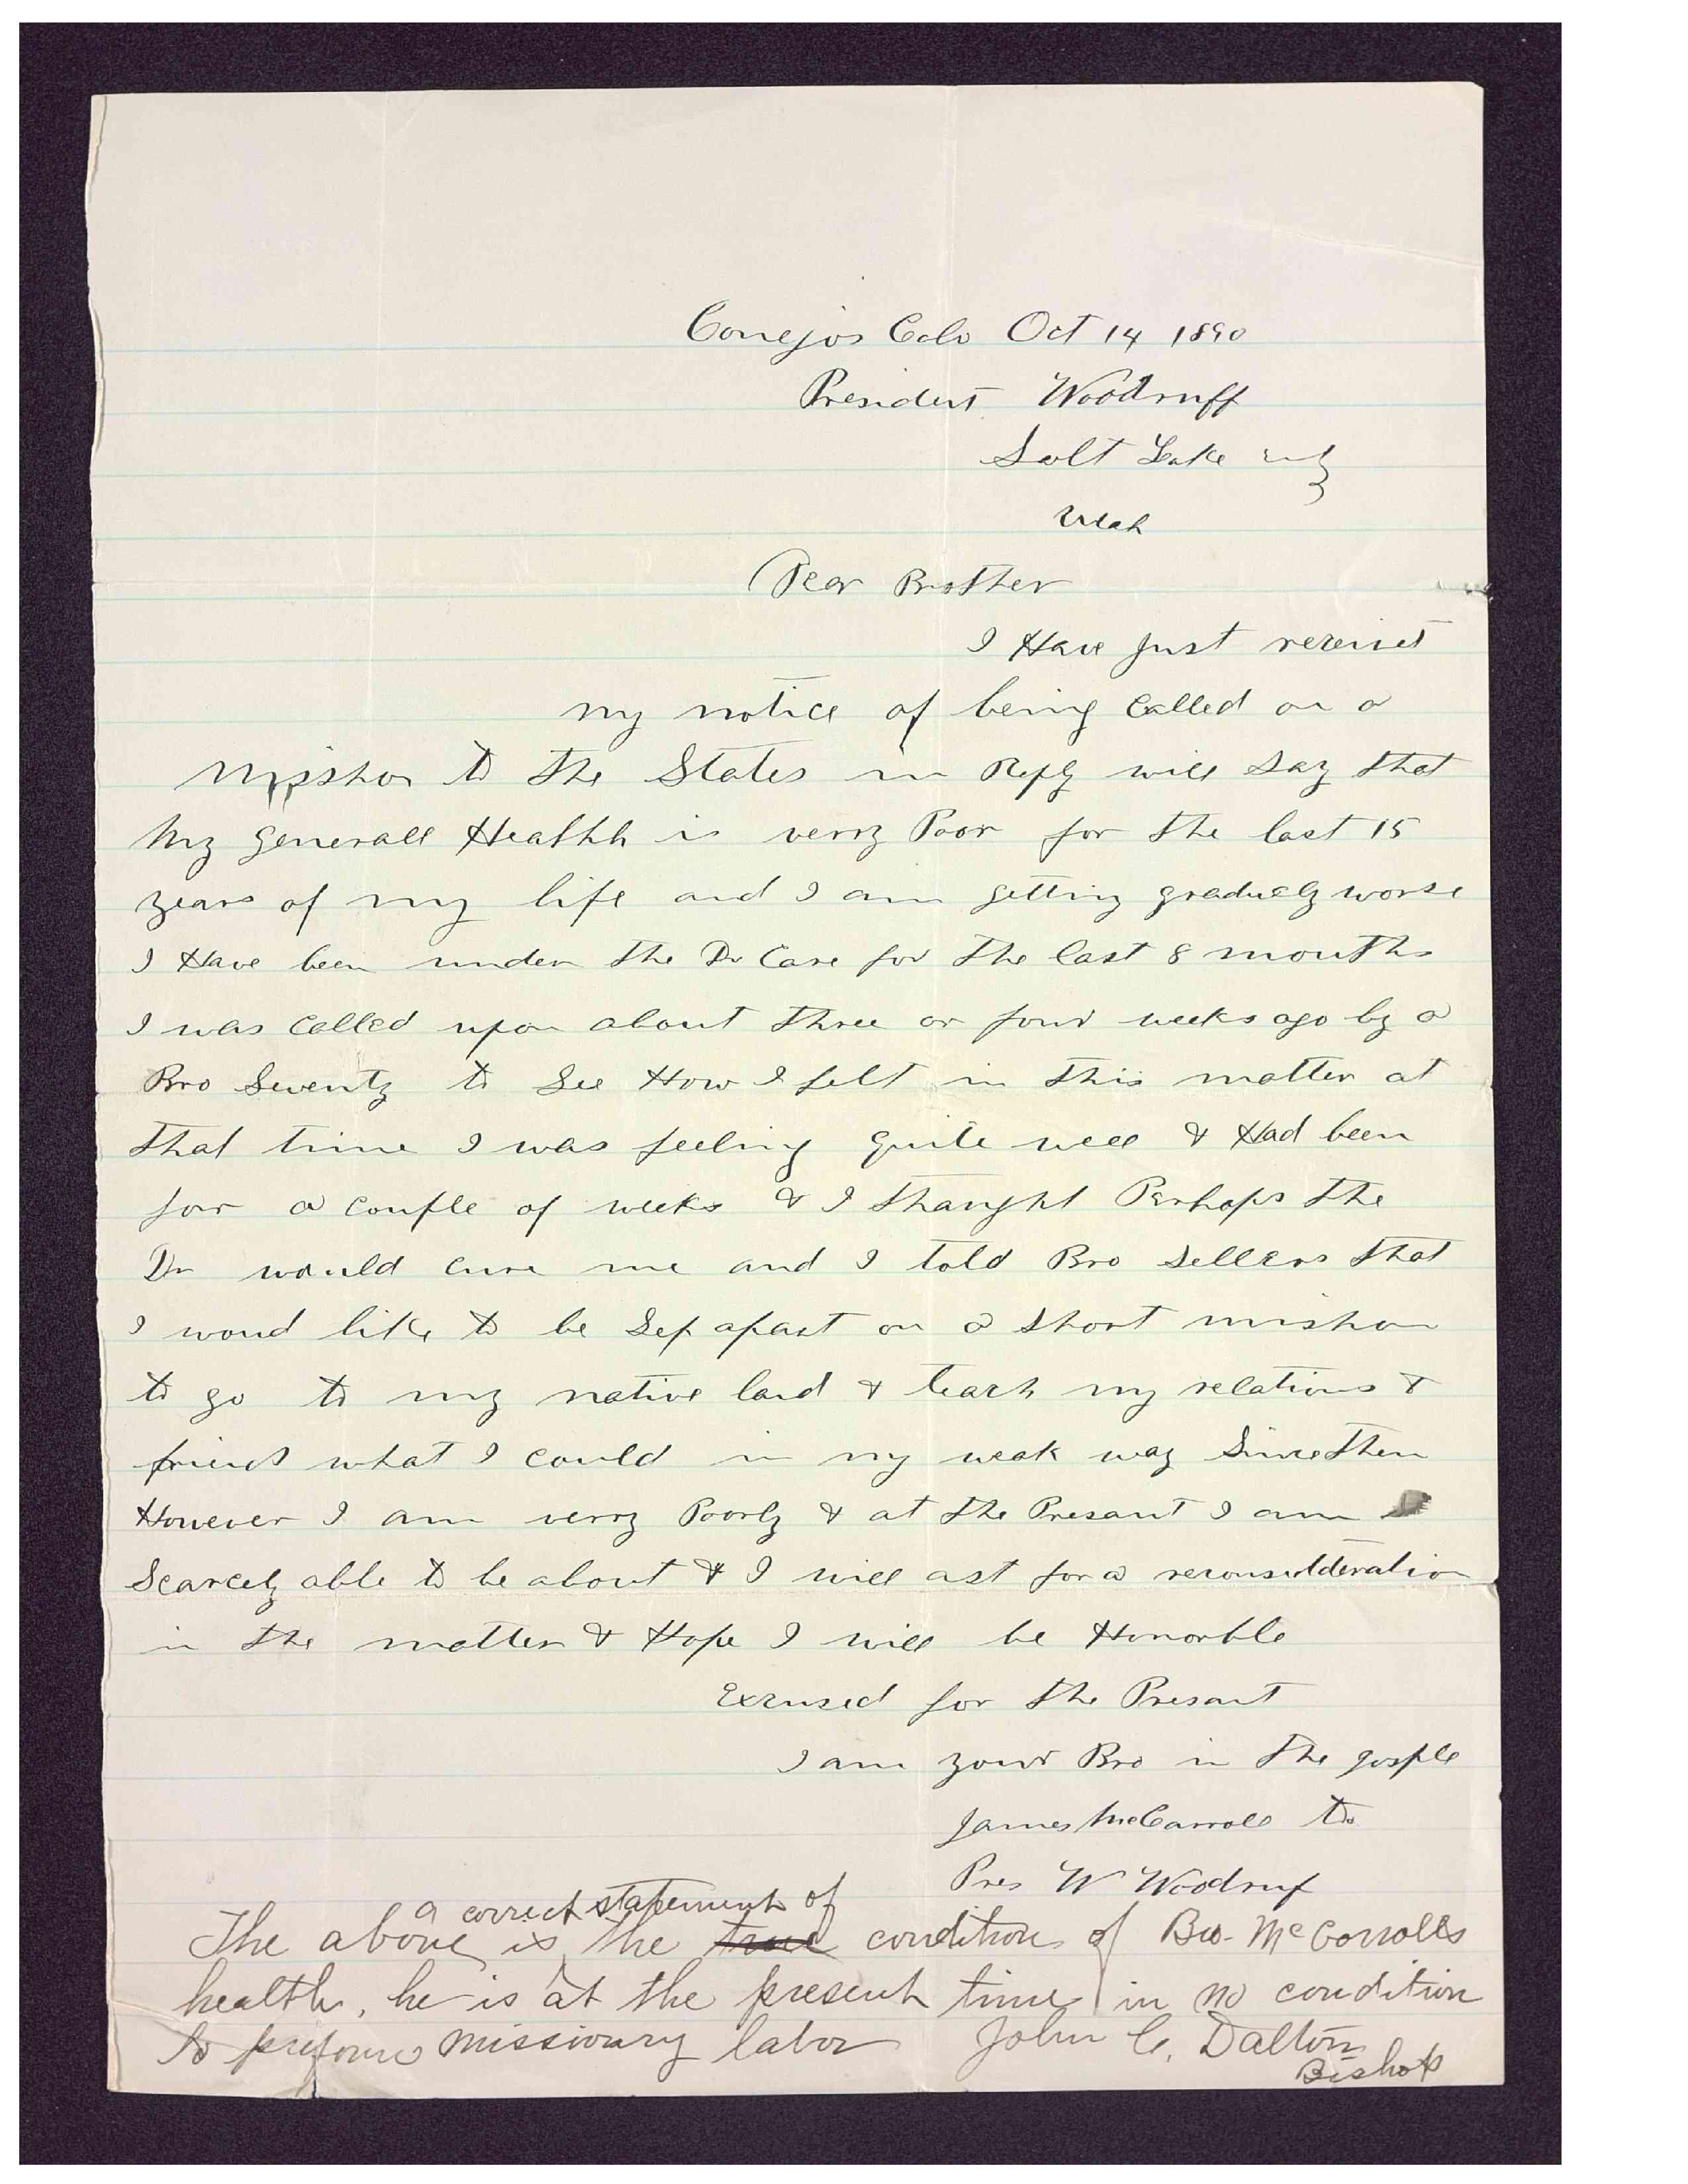 Conejos Colo Oct 14 1890
President Woodruff
Salt Lake city
Utah
Dear Brother
I Have Just receivet
my notice of being Called on a
Misshon to the States in Reply will Say that
My generall Healthh is verry Poor for the last 15
years of my life and I am getting graduely worse
I Have been under the Dr Care for the last 8 months
I was Called upon about three or four weeks ago by a
Bro Seventy to See How I felt in this matter at
that time I was feeling quite well & Had been
for a Couple of weeks & I thaught Perhaps the
Dr would cure me and I told Bro Sellers that
I woud like to be Sep apart on a Short mishon
to go to my native land & teach my relations &
friends what I could in my weak way Since then
However I am verry Poorly & at the Presant I am
Scarcely able to be about & I will ast for a reconsidderation
in the matter & Hope I will be Honorble
Excused for the Presant
I am your Bro in the gosple
James McCarroll to
Pres W Woodruf
a correct statement of
The above is the true condition of Bro. McCorrolls
health, he is at the present time in no condition
to preform missionary labor John C. Dalton
Bishop